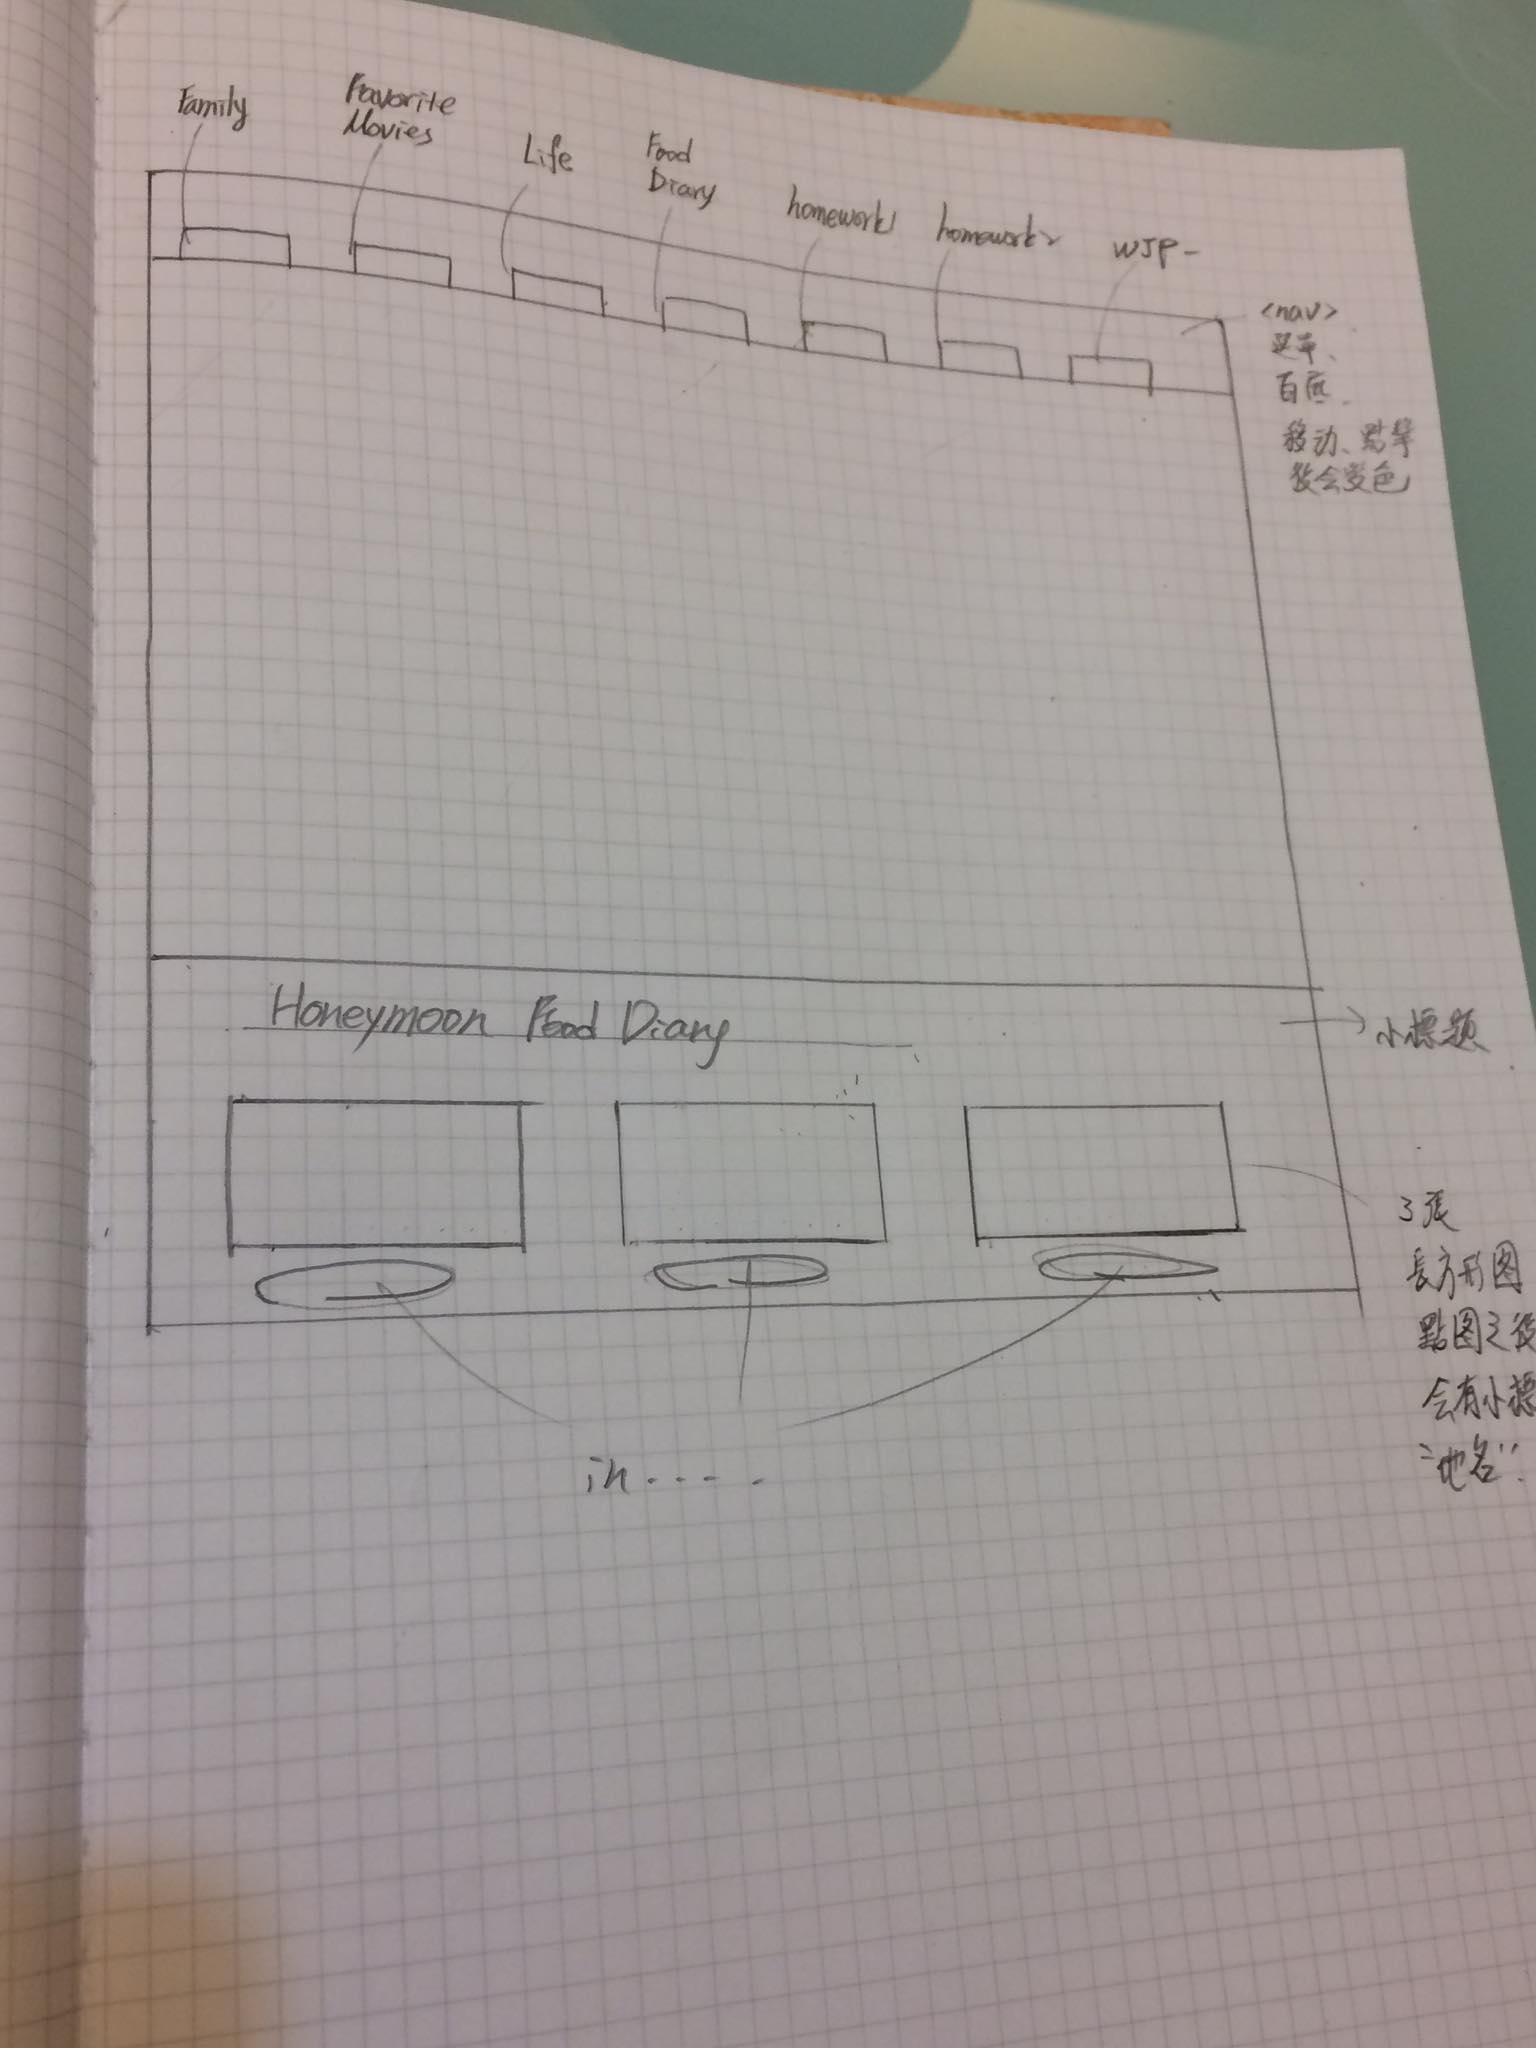 Family
Favorite
Movies
Life
Food
Diary
homework1
homework2
WJP-
<nav>
白底、
移动、點擊
後会变色
Honeymoon Food Diary
小標题
3張
長方形图
點图之後
会有小標
"地名"
in.....